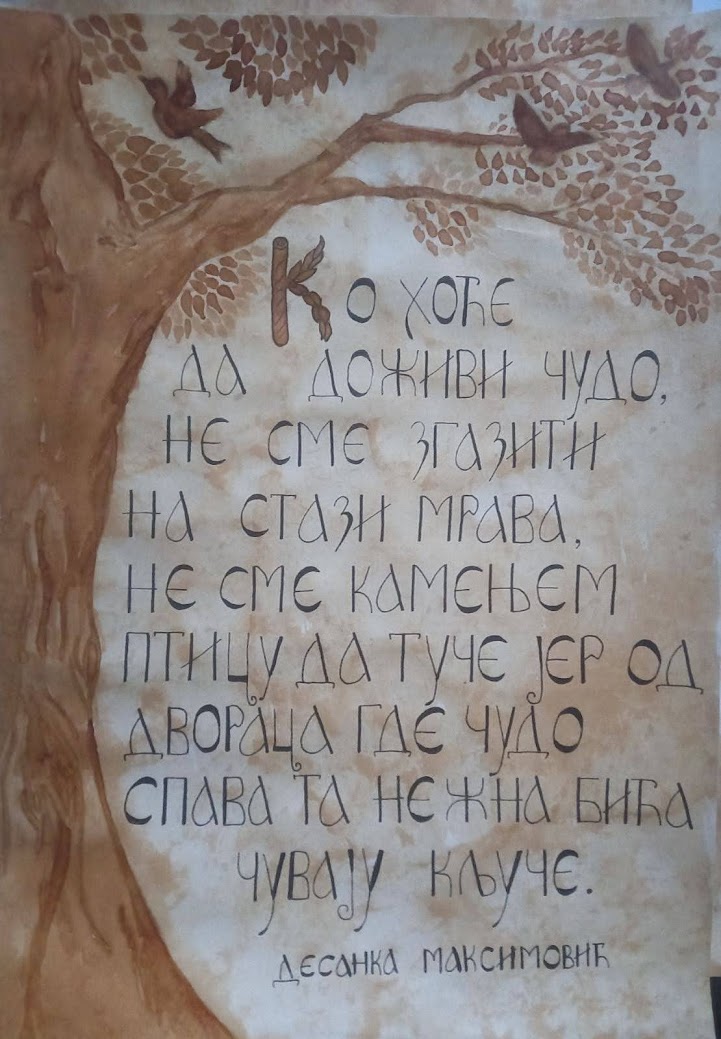 Ко хоће
да доживи чудо,
не сме згазити
на стази мрава,
не сме камењем
птицу да туче јер од
двораца где чудо
спава та нежна бића
чувају кључе.
Десанка Максимовић